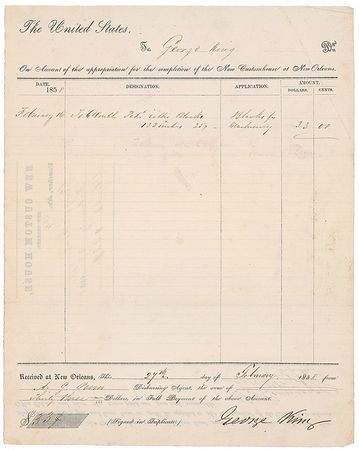 The United States,
To George King Dr.
On Account of the appropriation for the completion of the New Customhouse at New Orleans.
DATE. DESIGNATION. APPLICATION. AMOUNT.
1858 DOLLARS. CENTS.
February Blocks Blocks for
Machinery 33 00
Received at New Orleans, this 27th day of February 1858 from
A. G. Disbursing Agent, the sum of
Thirty three Dollars, in Full Payment of the above Account.
$33 (Signed in Duplicate) George King
NEW CUSTOM HOUSE,